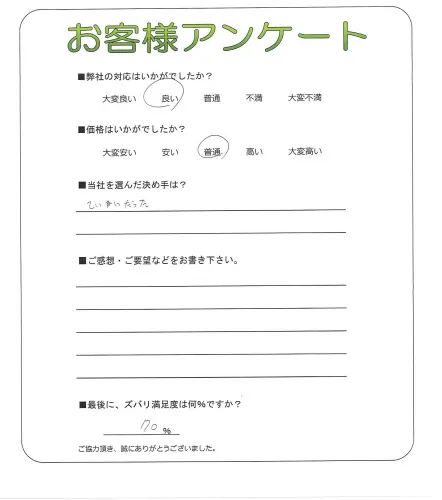 お客様アンケート
■弊社の対応はいかがでしたか？
大変良い 良い 普通 不満 大変不満
■価格はいかがでしたか？
大変安い 安い 普通 高い 大変高い
■当社を選んだ決め手は？
ていねいだった
■ご感想・ご要望などをお書き下さい。
■最後に、ズバリ満足度は何%ですか？
70 %
ご協力頂き、誠にありがとうございました。